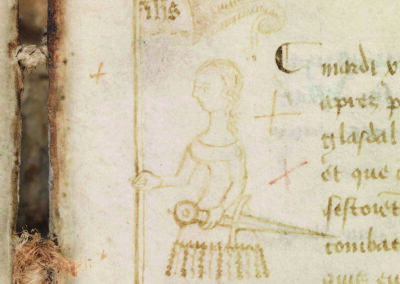 ihs
C mardi x
apres p
glasdal
et que
sestoient
combat